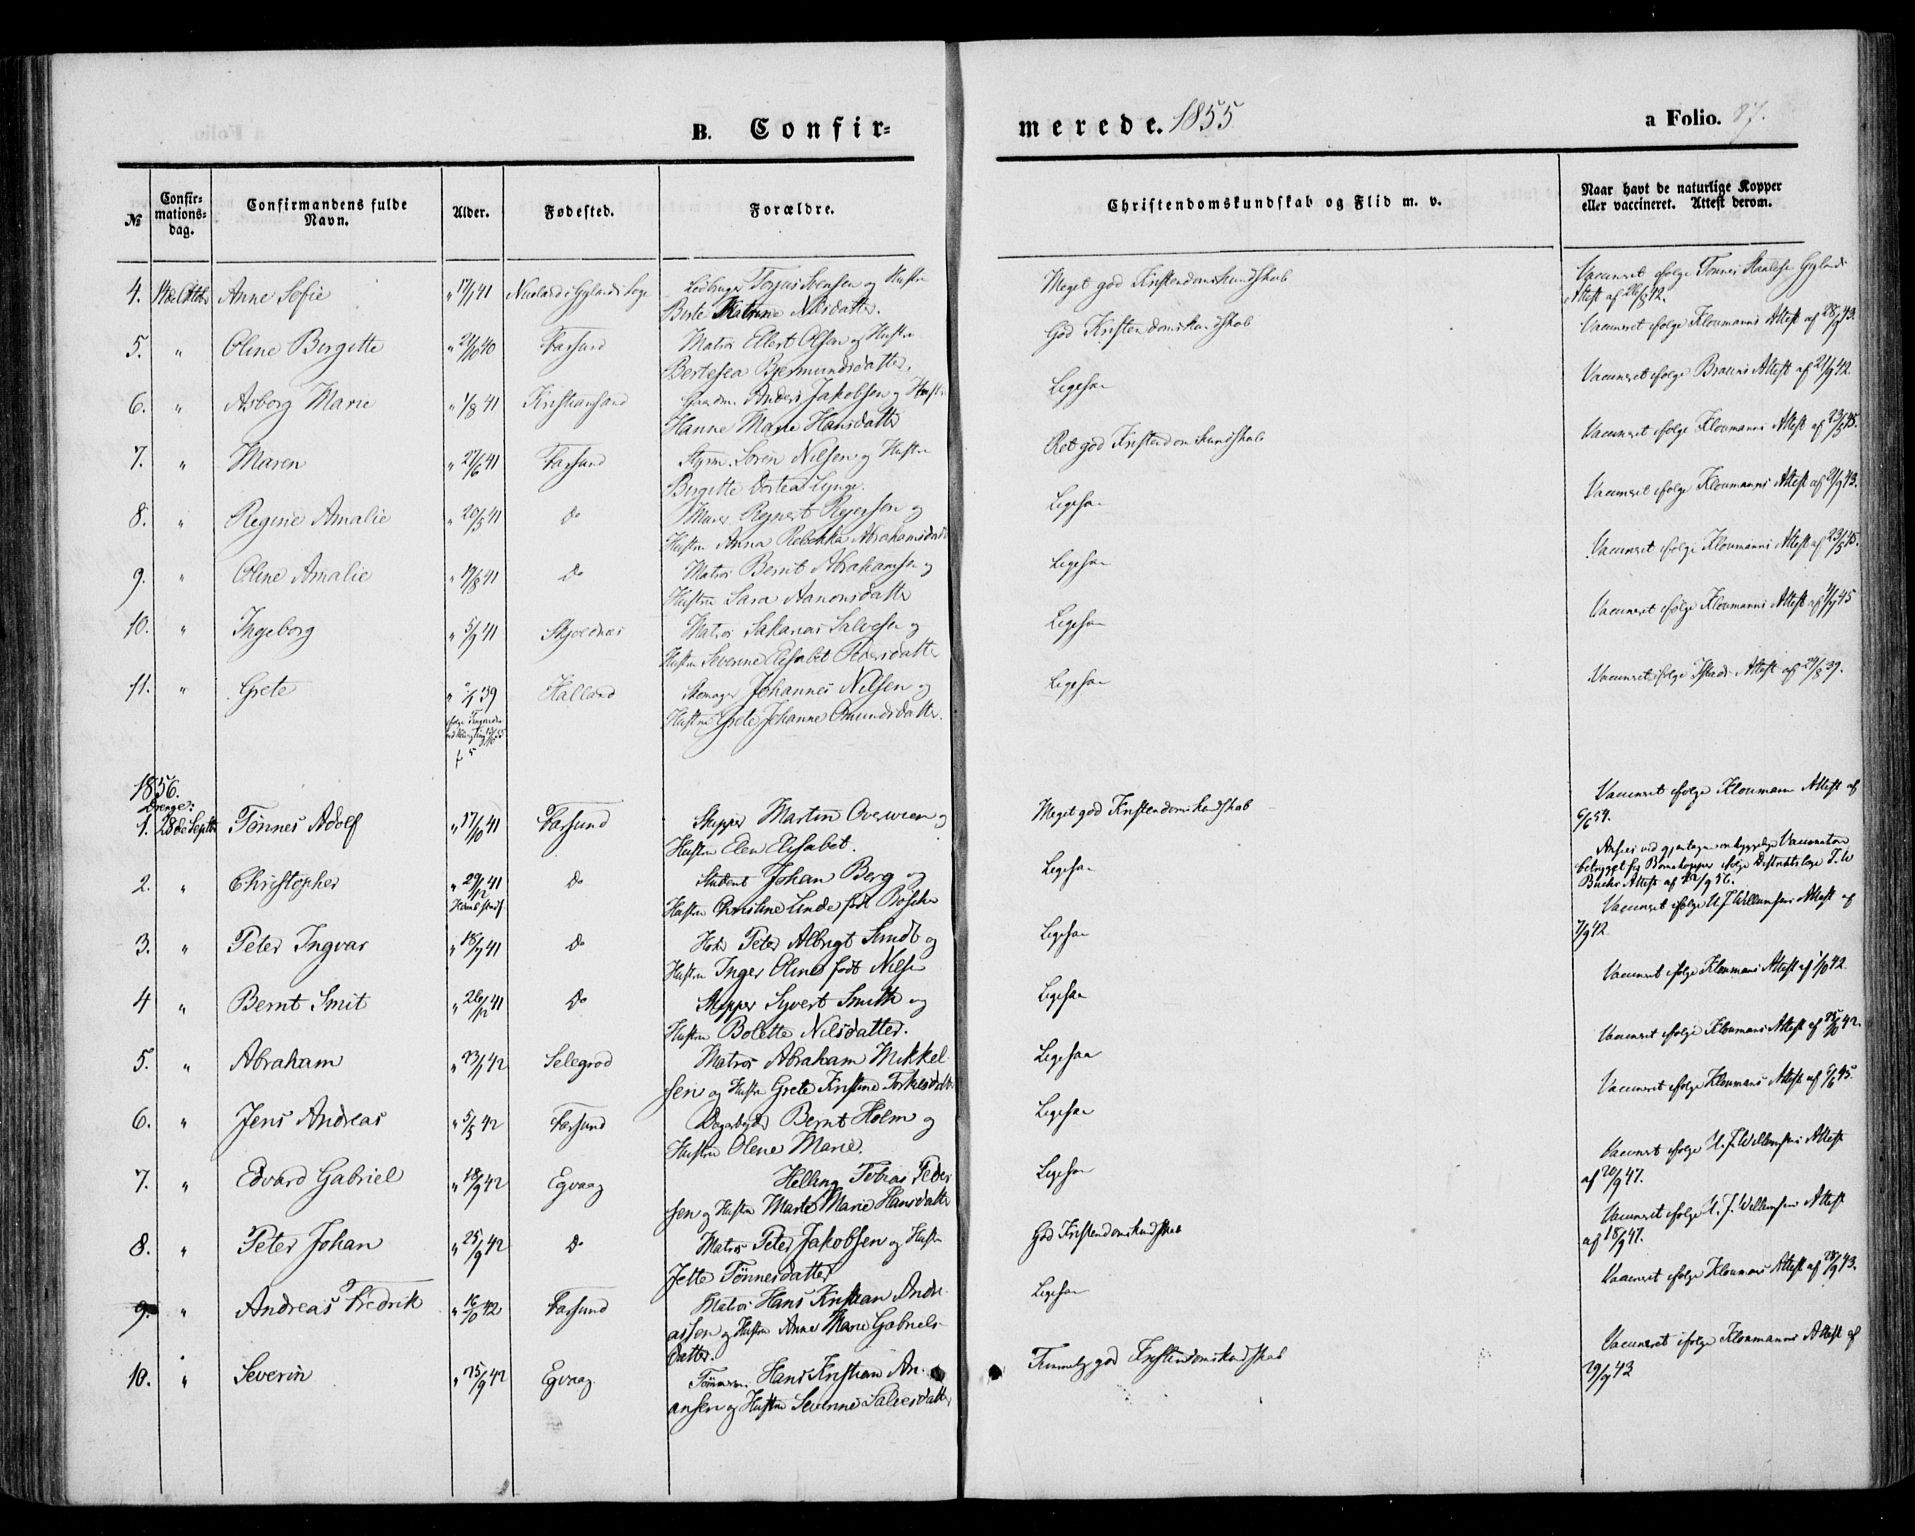 B. Confir-
merede. 1855
a Folio. 87.
№
Confir-
mations-
dag.
Confirmandens fulde
Navn.
Alder.
Fødested.
Forældre.
Christendomskundskab og Flid m. v.
Naar havt de naturlige Kopper
eller vaccineret. Attest derom.
4. 14de Octbr Anne Sofie " 17/1 41 Gylands Sogn Torjus Svensen og Hustru Meget god Kristendomskundskab Vaccineret ifølge Tønnes Gylands
Berte Katrine Nilsdatter. Attest af 26/8 42.
5. " Oline Bergette " 24/10 40 Farsund Matros Ellert Olsen og Hustru God Kristendomskundskab Vaccineret ifølge Kloumanns Attest af 28/9 43.
Bertesea Bjermundsdatter.
6. " Asborg Marie " 1/8 41 Kristiansand Anders Jakobsen og Hustru Ligesaa Vaccineret ifølge Brauns Attest af 21/9 42
Hanne Marie Hansdatter
7. " Maren " 27/6 41 Farsund Styrm. Soren Nilsen og Hustru Ret god Kristendomskundskab Vaccineret ifølge Kloumanns Attest af 23/5 45.
Bergette Dortea Lynge.
8. " Regine Amalie " 20/5 41 Do Murer Regnert Rejersen og Ligesaa Vaccineret ifølge Kloumanns Attest af 21/9 43.
Hustru Anna Rebekka Abrahamsdatter
9. " Oline Amalie " 17/8 41 Do Matros Bernt Abrahamsen og Ligesaa Vaccineret ifølge Kloumanns Attest af 23/5 45.
Hustru Sara Aanonsdatter
10. " Ingeborg " 5/9 41 Skjoldnes Matros Sakarias Salvesen og Ligesaa Vaccineret ifølge Kloumanns Attest af 45
Hustru Severine Elisabet Pedersdatter
11. " Grete " 39 Halland Johannes Nilsen og Ligesaa Vaccineret ifølge Attest af 24/8 39.
Hustru Grete Johanne Omundsdatter.
1856.
Drenge:
1. 28de Septbr Tønnes Adolf " 17/10 41 Farsund Skipper Martin Overwien og Meget god Kristendomskundskab Vaccineret ifølge Kloumann Attest af
Hustru Elen Elisabet. 6/6 54.
2. " Christopher " 29/12 41 Do Student Johan Berg og Ligesaa Ansees ved gjentagen omhyggelig Vaccination
Hjemmedøbt Hustru Christine Linde født Bøscke betrygget for Børnekopper ifølge Distriktslæge
Attest af 56.
3. " Peter Ingvar " 18/9 41 Do Peter Albrigt Smidt og Ligesaa Vaccineret ifølge U J Willumsens Attest af
Hustru Inger Oline født Nilsen 7/9 42.
4 " Bernt Smit " 26/12 41 Do Skipper Syvert Smith og Ligesaa Vaccineret ifølge Kloumans Attest af 42.
Hustru Bolette Nilsdatter.
5. " Abraham " 23/1 42 Selegrod Matros Abraham Mikkel- Ligesaa Vaccineret ifølge Kloumans Attest af 25/10 42.
sen og Hustru Grete Kristine Torkelsdatter
6. " Jens Andreas " 5/3 42 Farsund Dagarbejder Bernt Holm og Ligesaa Vaccineret ifølge Kloumans Attest af 45.
Hustru Olene Marie.
7. " Edvard Gabriel " 18/9 42 Egvaag Helling Tobias Peder- Ligesaa Vaccineret ifølge U. J. Willumsens Attest
sen og Hustru Marte Marie Hansdatter af 20/9 47.
8. " Peter Johan " 25/9 42 Do Matros Peter Jakobsen og Hustru God Kristendomskundskab Vaccineret ifølge U. J. Willumsen Attest
Jette Tønnesdatter af 18/9 47.
9. " Andreas Fredrik " 16/10 42 Farsund Matros Hans Kristian Andre- Ligesaa Vaccineret ifølge Kloumans Attest af 28/9 43.
assen og Hustru Anne Marie Gabriels-
datter.
10. " Severin " 25/9 42 Egvaag Tømmerm. Hans Kristian An- Temmelig god Kristendomskundskab Vaccineret ifølge Kloumanns Attest af
ansen og Hustru Severine Salvesdatter 29/9 43